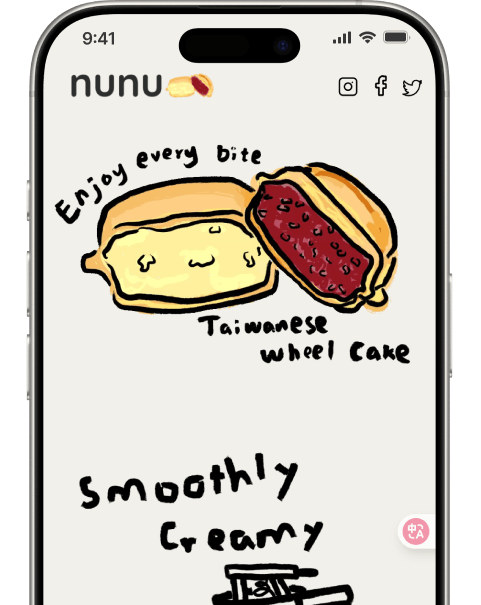 9:41
nunu
Enjoy every bite
Taiwanese
wheel Cake
Smoothly
Creamy
中A